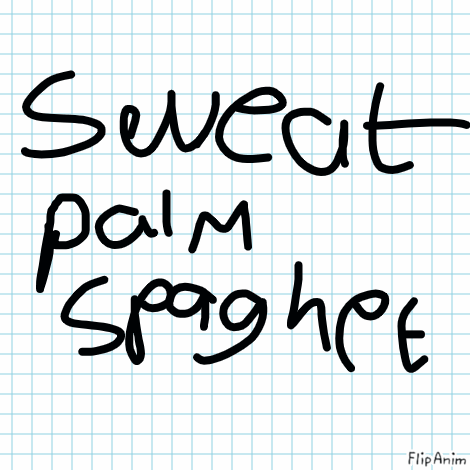 Sweat
palm
spaghet
FlipAnim